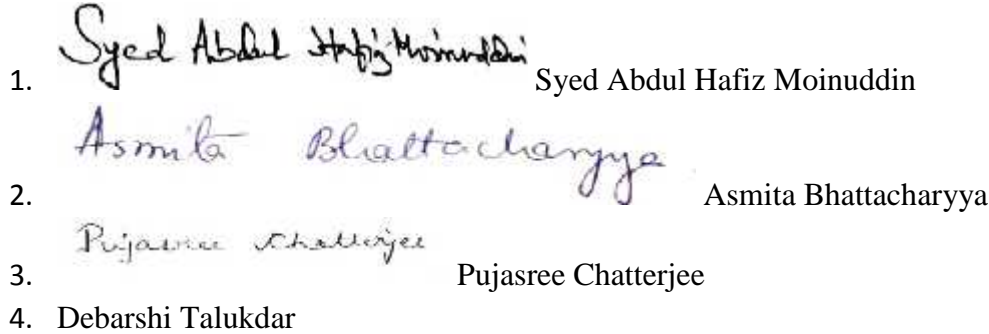 1. Syed Abdul Hafiz Moinuddin Syed Abdul Hafiz Moinuddin
2. Asmita Bhattacharyya Asmita Bhattacharyya
3. Pujasree Chatterjee Pujasree Chatterjee
4. Debarshi Talukdar